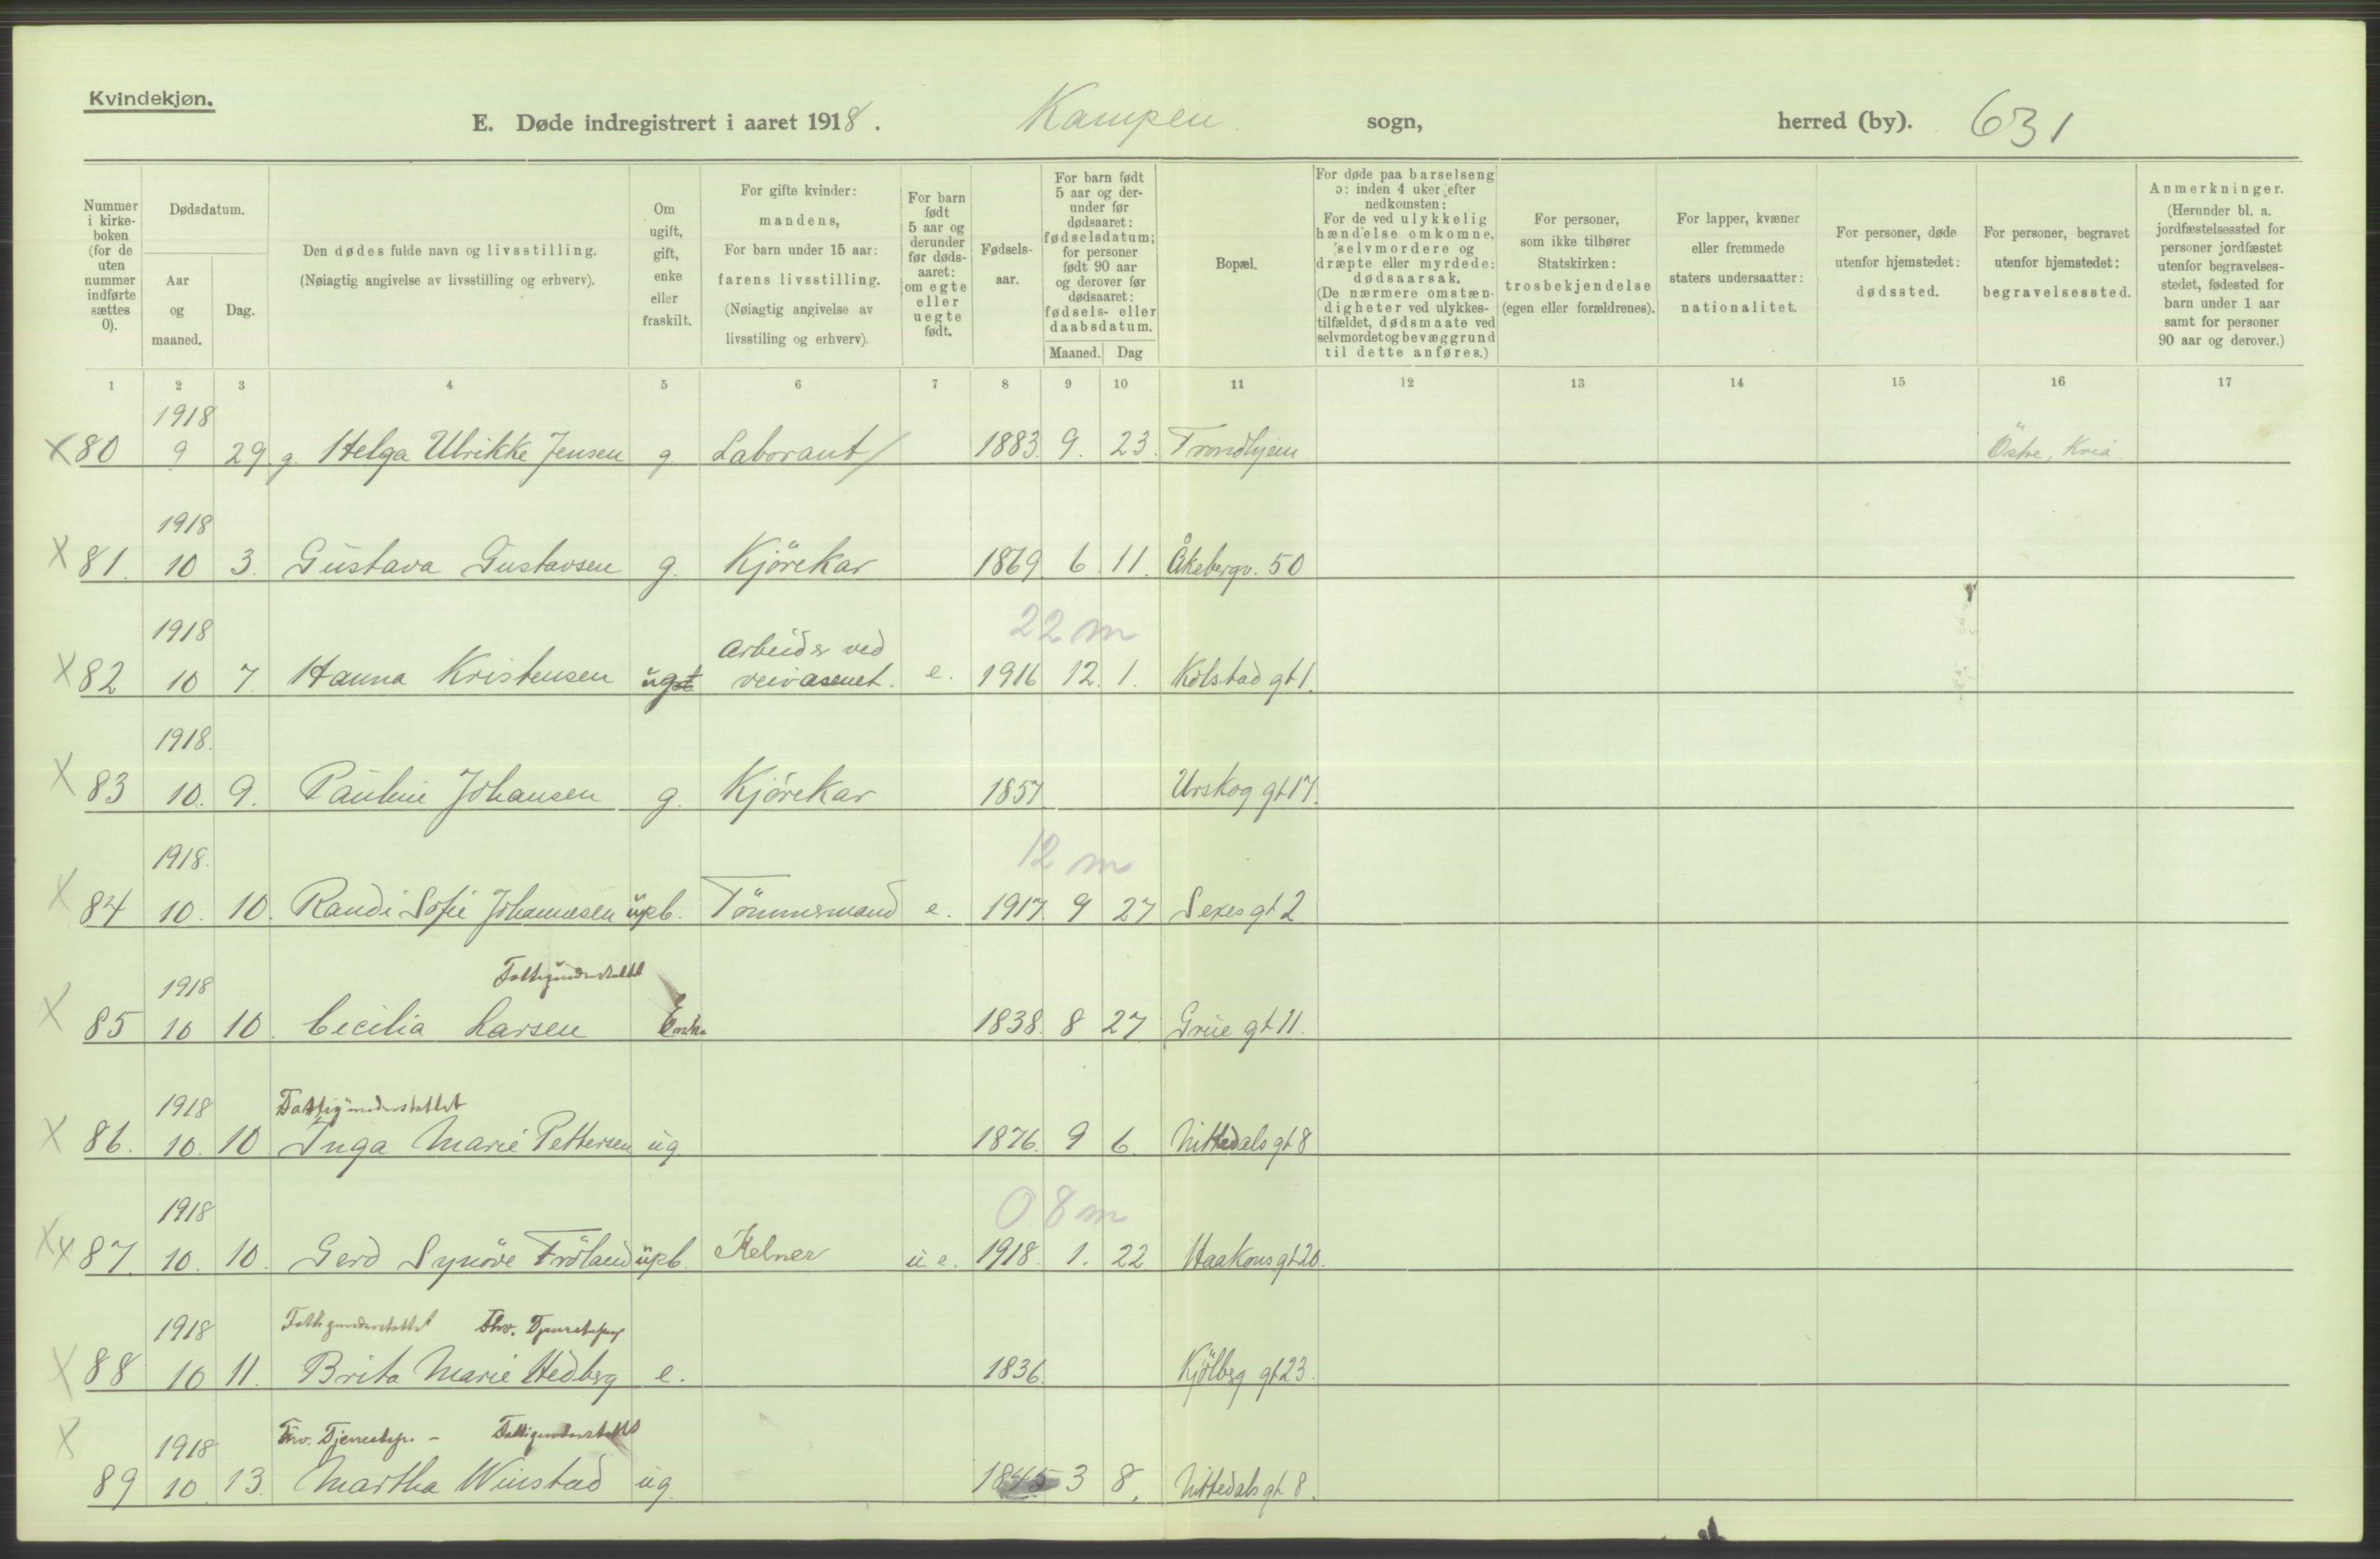 Kvindekjøn.
E. Døde indregistrert i aaret 1918. Kampen sogn, herred (by). 631
Nummer i kirkeboken (for de uten nummer indførte sættes 0).
Dødsdatum.
Aar og maaned.
Dag.
Den dødes fulde navn og livsstilling.
(Nøiagtig angivelse av livsstilling og erhverv).
Om ugift, gift, enke eller fraskilt.
For gifte kvinder: mandens,
For barn under 15 aar: farens livsstilling.
(Nøiagtig angivelse av livsstiling og erhverv).
For barn født 5 aar og derunder før dødsaaret: om egte eller uegte født.
Fødselsaar.
For barn født 5 aar og derunder før dødsaaret: fødselsdatum; for personer født 90 aar og derover før dødsaaret: fødsels- eller daabsdatum.
Maaned. Dag
Bopæl.
For døde paa barselseng ɔ: inden 4 uker efter nedkomsten:
For de ved ulykkelig hændelse omkomne, selvmordere og dræpte eller myrdede: dødsaarsak.
(De nærmere omstændigheter ved ulykkestilfældet, dødsmaate ved selvmordet og bevæggrund til dette anføres.)
For personer, som ikke tilhører Statskirken: trosbekjendelse (egen eller forældrenes).
For lapper, kvæner eller fremmede staters undersaatter: nationalitet.
For personer, døde utenfor hjemstedet: dødssted.
For personer, begravet utenfor hjemstedet: begravelsessted.
Anmerkninger.
(Herunder bl. a. jordfæstelsessted for personer jordfæstet utenfor begravelsesstedet, fødested for barn under 1 aar samt for personer 90 aar og derover.)
1 2 3 4 5 6 7 8 9 10 11 12 13 14 15 16 17
1918
X 80 9 29 g. Helga Ulrikke Jensen g Laborant 1883. 9. 23. Trondhjem Østre, Kria.
1918
X 81. 10 3. Gustava Gustavsen g. Kjörekar 1869 6 11. Åkebergv. 50
1918 22 m
Arbeider ved
X 82 10 7. Hanna Kristensen ugt veivæsenet. e. 1916 12. 1. Kolstad gt 1.
1918.
X 83 10. 9. Pauline Johansen g. Kjörekar 1857 Urskog gt 17.
1918. 12 m
X 84 10. 10. Randi Sofie Johannesen upb. Tömmermand e. 1917. 9 27 Sexes gt 2
1918 Fattigunderstøttet
X 85 10 10. Cecilia Larsen Enke 1838. 8 27 Grue gt 11.
1918 Fattigunderstøttet
X 86. 10. 10 Inga Marie Pettersen ug. 1876. 9 6. Nittedals gt 8
1918 0 8 m
X X 87. 10. 10. Gerd Synöve Fröland upb. Kelner u. e. 1918. 1. 22 Haakons gt 20.
1918 Fattigunderstøttet Fhv. Tjenestepig
X 88 10 11. Brita Marie Hedberg e. 1836. Kjölberg gt 23.
X 1918 Fhv. Tjenestep. - Fattigunderstøttet
89 10. 13. Martha Winstad ug. 1845 3 8. Nittedals gt 8.